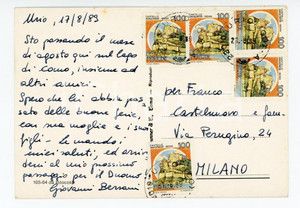 17/8/89
Sto passando il mese
di agosto qui sul lago
di Como, insieme ad
altri amici.
Spero che lei abbia pas-
sato delle buone ferie,
con sua moglie e i suoi
figli - Le mando i
miei saluti, ed arrive-
derci al mio prossimo
passaggio per il Duomo
Giovanni Bersani
per Franco
Castelnuovo e fam.
Via Perugino, 24
MILANO
100
100
100
100
100
100